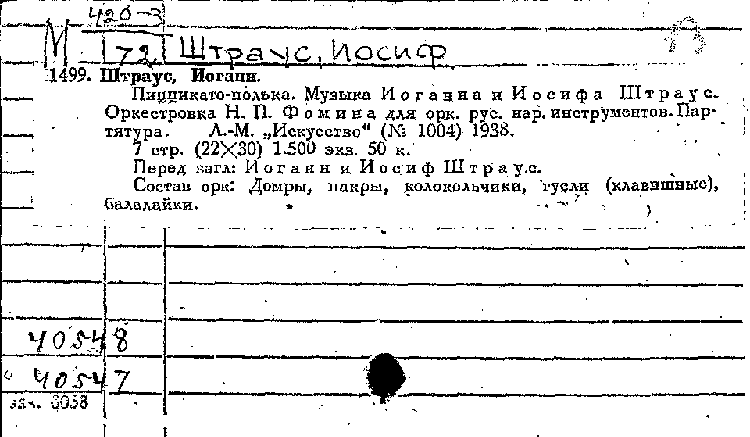 420-3
М 72 Штраус, Иосиф
1499. Штраус, Иоганн.
Пиццикато-полька. Музыка Иоганна и Иосифа Штраус.
Оркестровка Н. П. Фомина для орк. рус. нар. инструментов. Пар-
титура. Л.-М. „Искусство“ (№ 1004) 1938.
7 стр. (22×30) 1.500 экз. 50 к.
Перед загл: Иоганн и Иосиф Штраус.
Состав орк: Домры, накры, колокольчики, гусли (клавишные),
балалайки.
40548
40547
зак. 6058